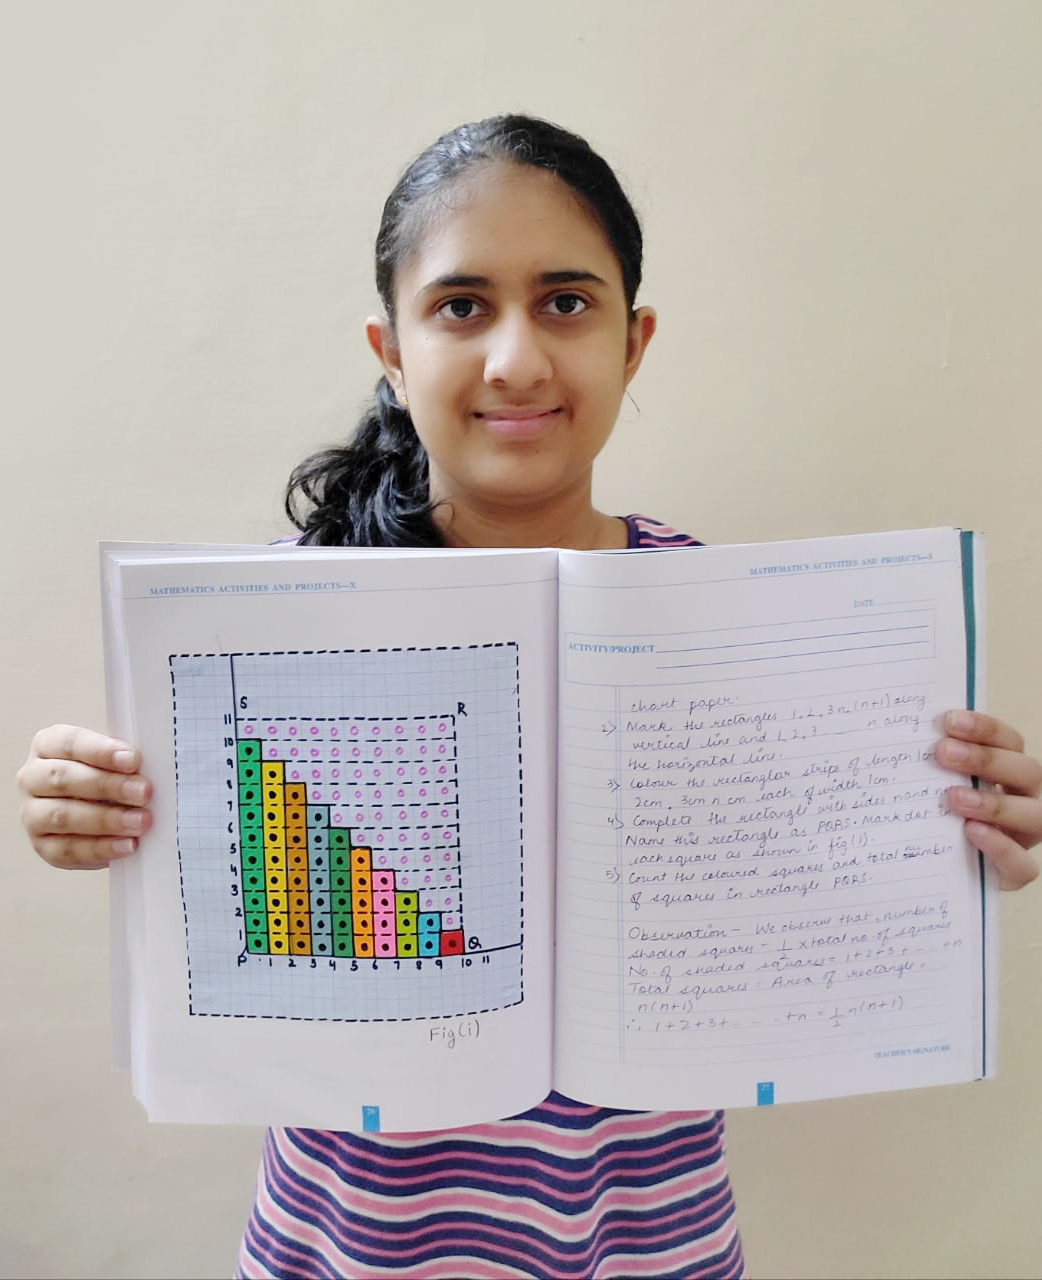 MATHEMATICS ACTIVITIES AND PROJECTS—X
S
R
11
10
9
8
7
6
5
4
3
2
1
P 1 2 3 4 5 6 7 8 9 10 11
Q
Fig(i)
26
MATHEMATICS ACTIVITIES AND PROJECTS—X
DATE
ACTIVITY/PROJECT
chart paper.
2) Mark the rectangles 1, 2, 3 n, (n+1) along
vertical line and 1, 2, 3 n along
the horizontal line.
3) Colour the rectanglar strips of length 1cm
2cm, 3cm n cm each of width 1cm.
4) Complete the rectangle with sides n and n
Name this rectangle as PQRS. Mark dot in
each square as shown in fig(1).
5) Count the coloured squares and total number
of squares in rectangle PQRS.
Observation – We observe that, number of
shaded squares = 1/2 x total no. of squares
No. of shaded squares = 1+2+3+ ---- +n
Total squares = Area of rectangle =
n(n+1)
∴ 1+2+3+ - - - - +n = 1/2 n(n+1)
TEACHER'S SIGNATURE
27